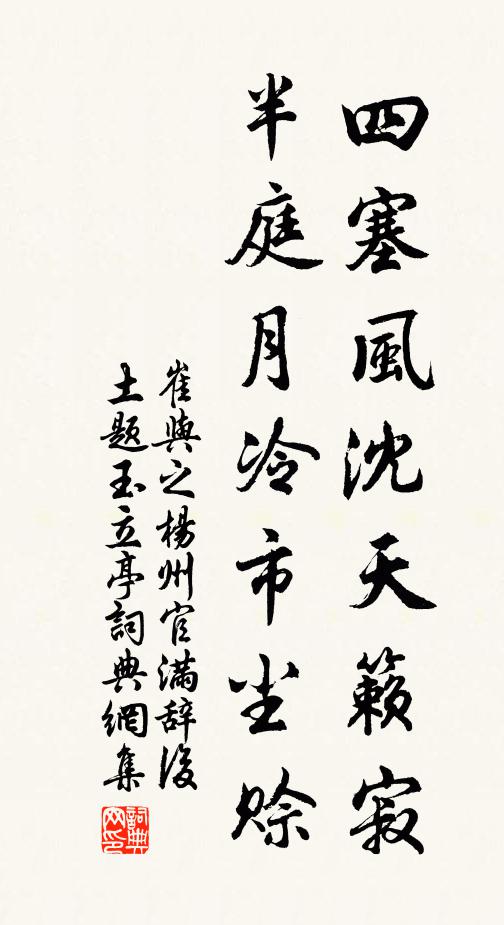 四塞風沈天籟寂
半庭月冷市尘賒
崔與之楊州官滿辞後
土題玉立亭詞典網集
詞典网印